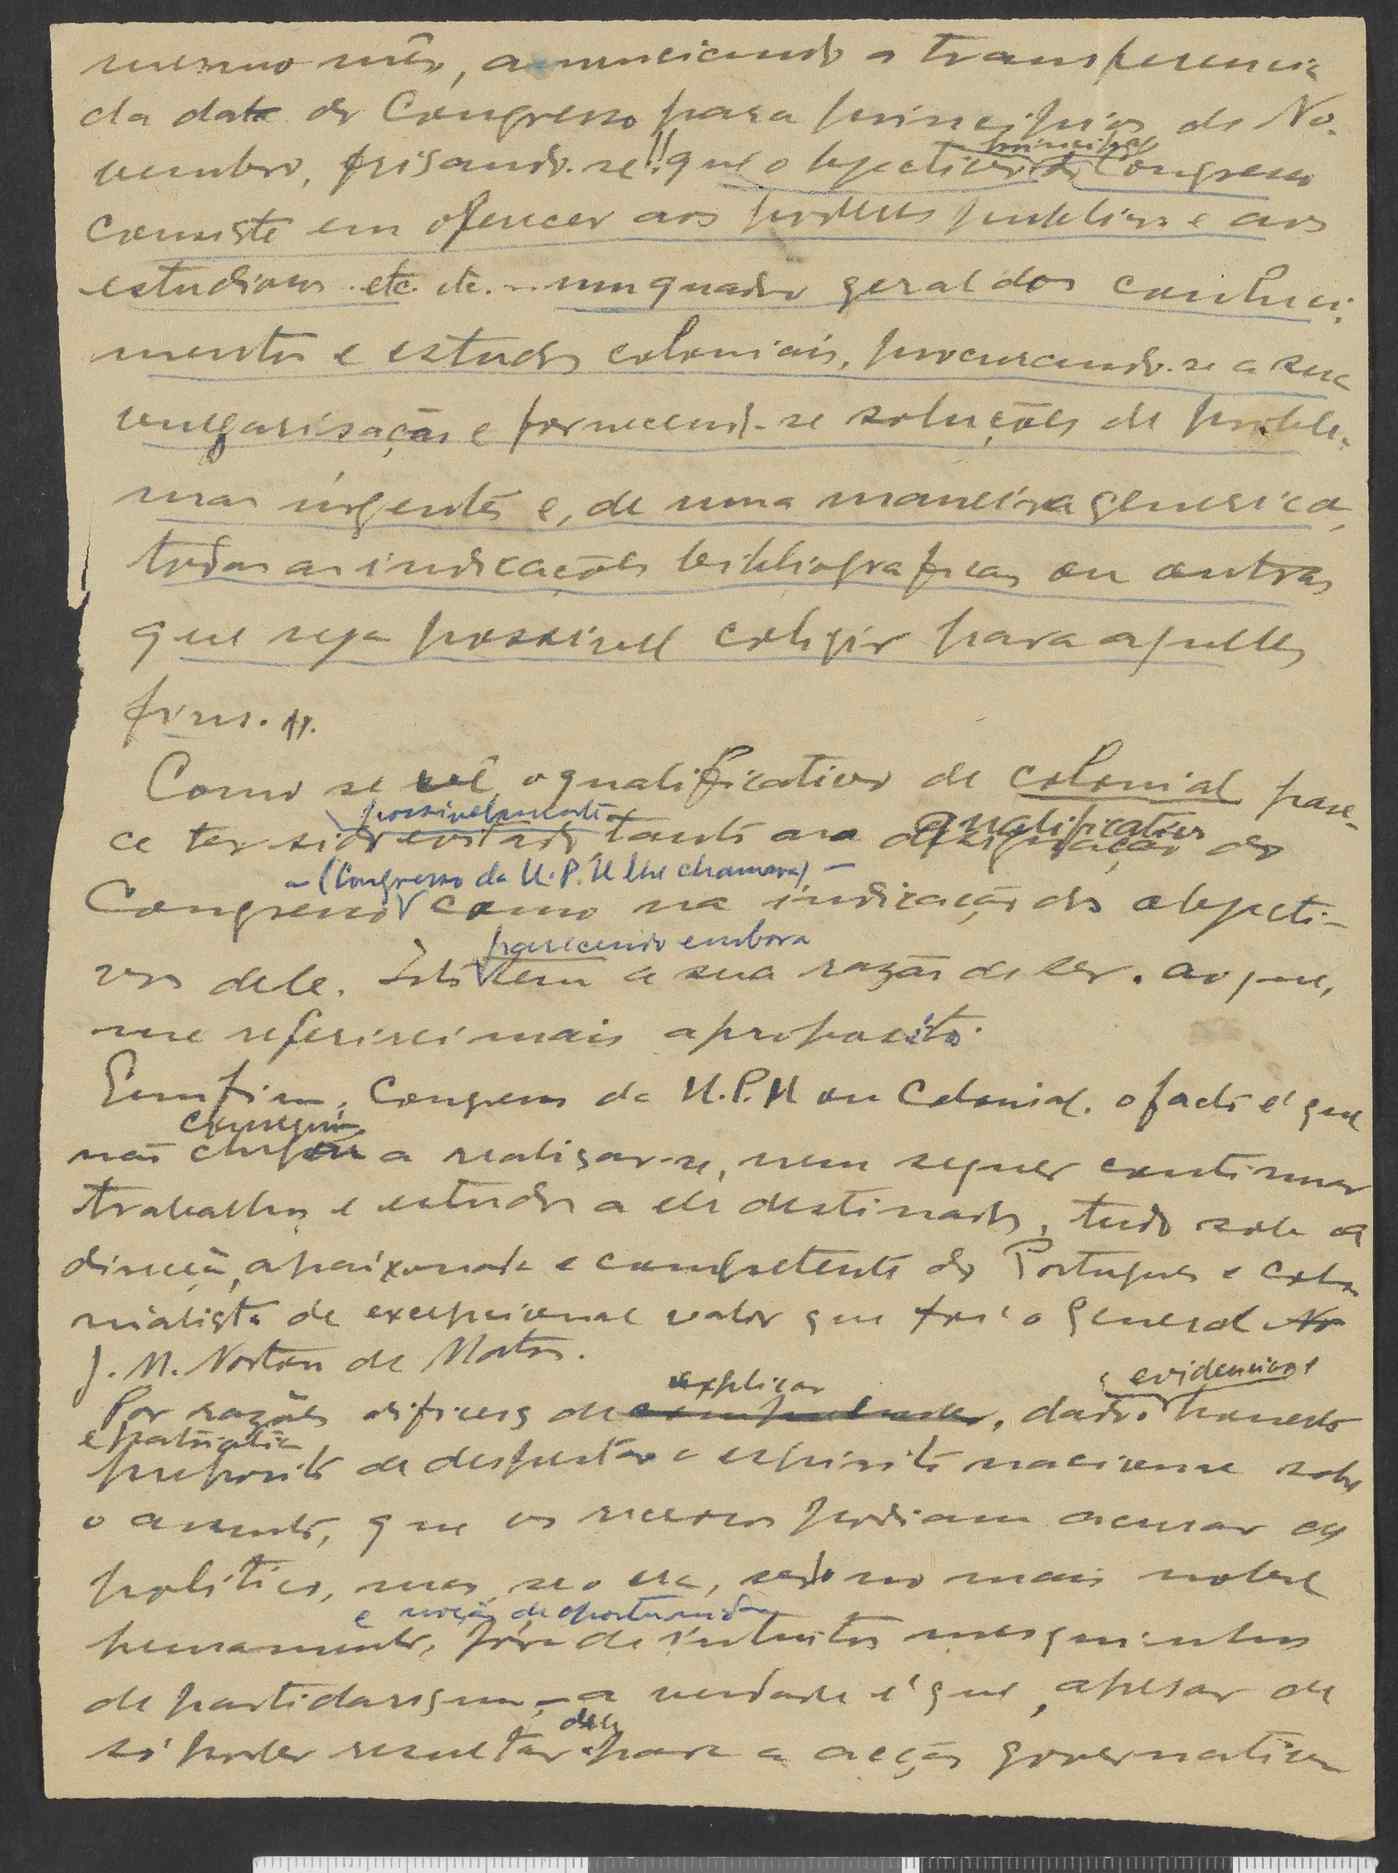 mesmo mês, anunciando a transferencia
da data do Congresso para principios de No-
vembro, frisando-se "que o objectivo principal do Congresso
consiste em oferecer aos poderes publicos e aos
estudiosos etc. etc. ... um quadro geral dos conheci-
mentos e estudos coloniais, procurando-se a sua
vulgarisação e fornecendo-se soluções de proble-
mas urgentes e, de uma maneira generica,
todas as indicações bibliograficas ou outras
que seja possivel coligir para aqueles
fins.".
Como se vê, o qualificativo de colonial pare-
possivelmente
ce ter sido evitado, tanto no qualificativo do
- (Congresso da U.P.U lhe chamava) -
Congresso como na indicação dos objecti-
parecendo embora
vos dele. Isto tem a sua razão de ser. ao que,
me referirei mais a proposito.
Emfim, Congresso da U.P.U ou Colonial. o facto é que
conseguiu
não chegou a realisar-se, nem sequer continuar
trabalhos e estudos a ele destinados, tudo sob a
direcção apaixonada e competente do Português e colo-
nialista de excepcional valor que foi o General No
J. M. Norton de Matos.
explicar evidenciar
Por razões dificeis de, dado o honesto
e patriotico
proposito de despertar o espirito nacional sobre
o assunto, que os receosos podiam acusar de
politico, mas, se o era, sendo no mais nobre
e noção de oportunidade
pensamento, fóra de intuitos mesquinhos
de partidarismo, - a verdade é que, apesar de
dele
só poder resultar para a acção governativa